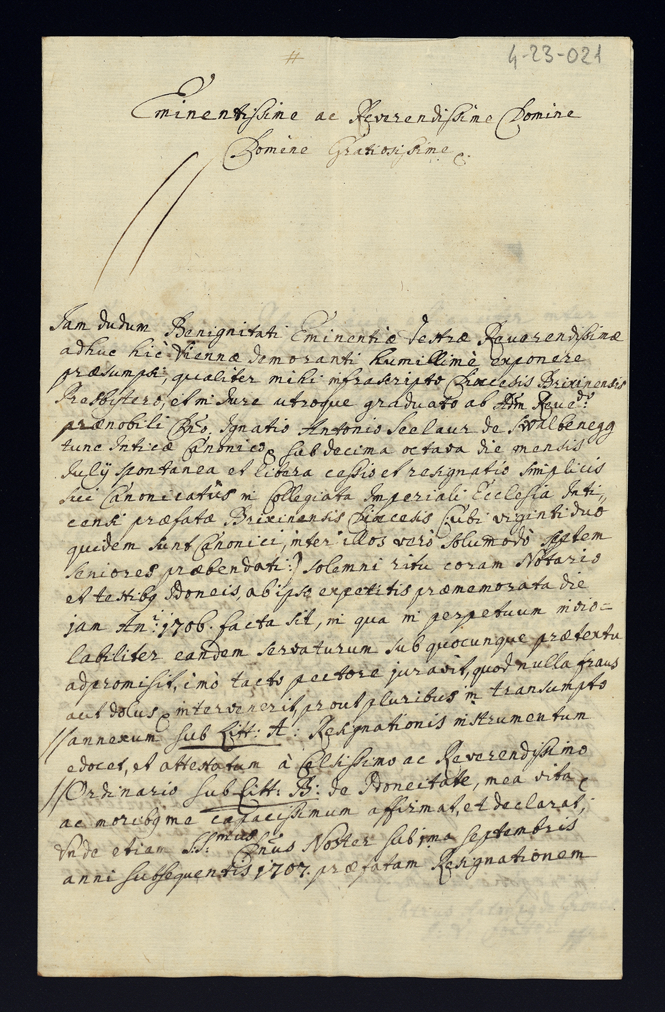 4-23-021
Eminentissime ac Reverendissime Domine
Domine Gratiosissime
Jam dudum Benignitati Eminentiæ Vestræ Reverendissimæ
adhuc hic Viennæ demoranti humillimè exponere
præsumpsi, qualiter mihi infrascripto Diœcesis Brixinensis
Presbitero, et in Jure utroque graduato ab Adm Reved:
prænobili Dno, Ignatio Antonio Seelaur de
tunc Inticæ Canonico, sub decima octava die mensis
Julij spontanea et libera cessio et resignatio simplicis
sui Canonicatûs in Collegiata Imperiali Ecclesia Inti,,
censi præfatæ Brixinensis Diœcesis (:ubi viginti duo
quidem sunt Canonici, inter illos vero solummodo septem
seniores præbendati:) solemni ritu coram Notario
et testibq idoneis ab ipso expetitis præmemorata die
jam Ani: 1706. facta sit, in qua in perpetuum invio=
labiliter eandem servaturum sub quocunque prætextu
adpromisit, imò tacto pectore juravit, quod nulla fraus
aut dolus intervenerit, prout pluribus in transumpto
// annexum sub Litt: A: Resignationis instrumentum
edocet, et attestatum à Celsissimo ac Reverendissimo
// Ordinario sub Litt: B: de Idoneitate, mea vita
ac moribq me capacissimum affirmat, et declarat,
Unde etiam SS:mus Dnus Noster sub ima Septembris
anni subsequentis 1707. præfatam Resignationem